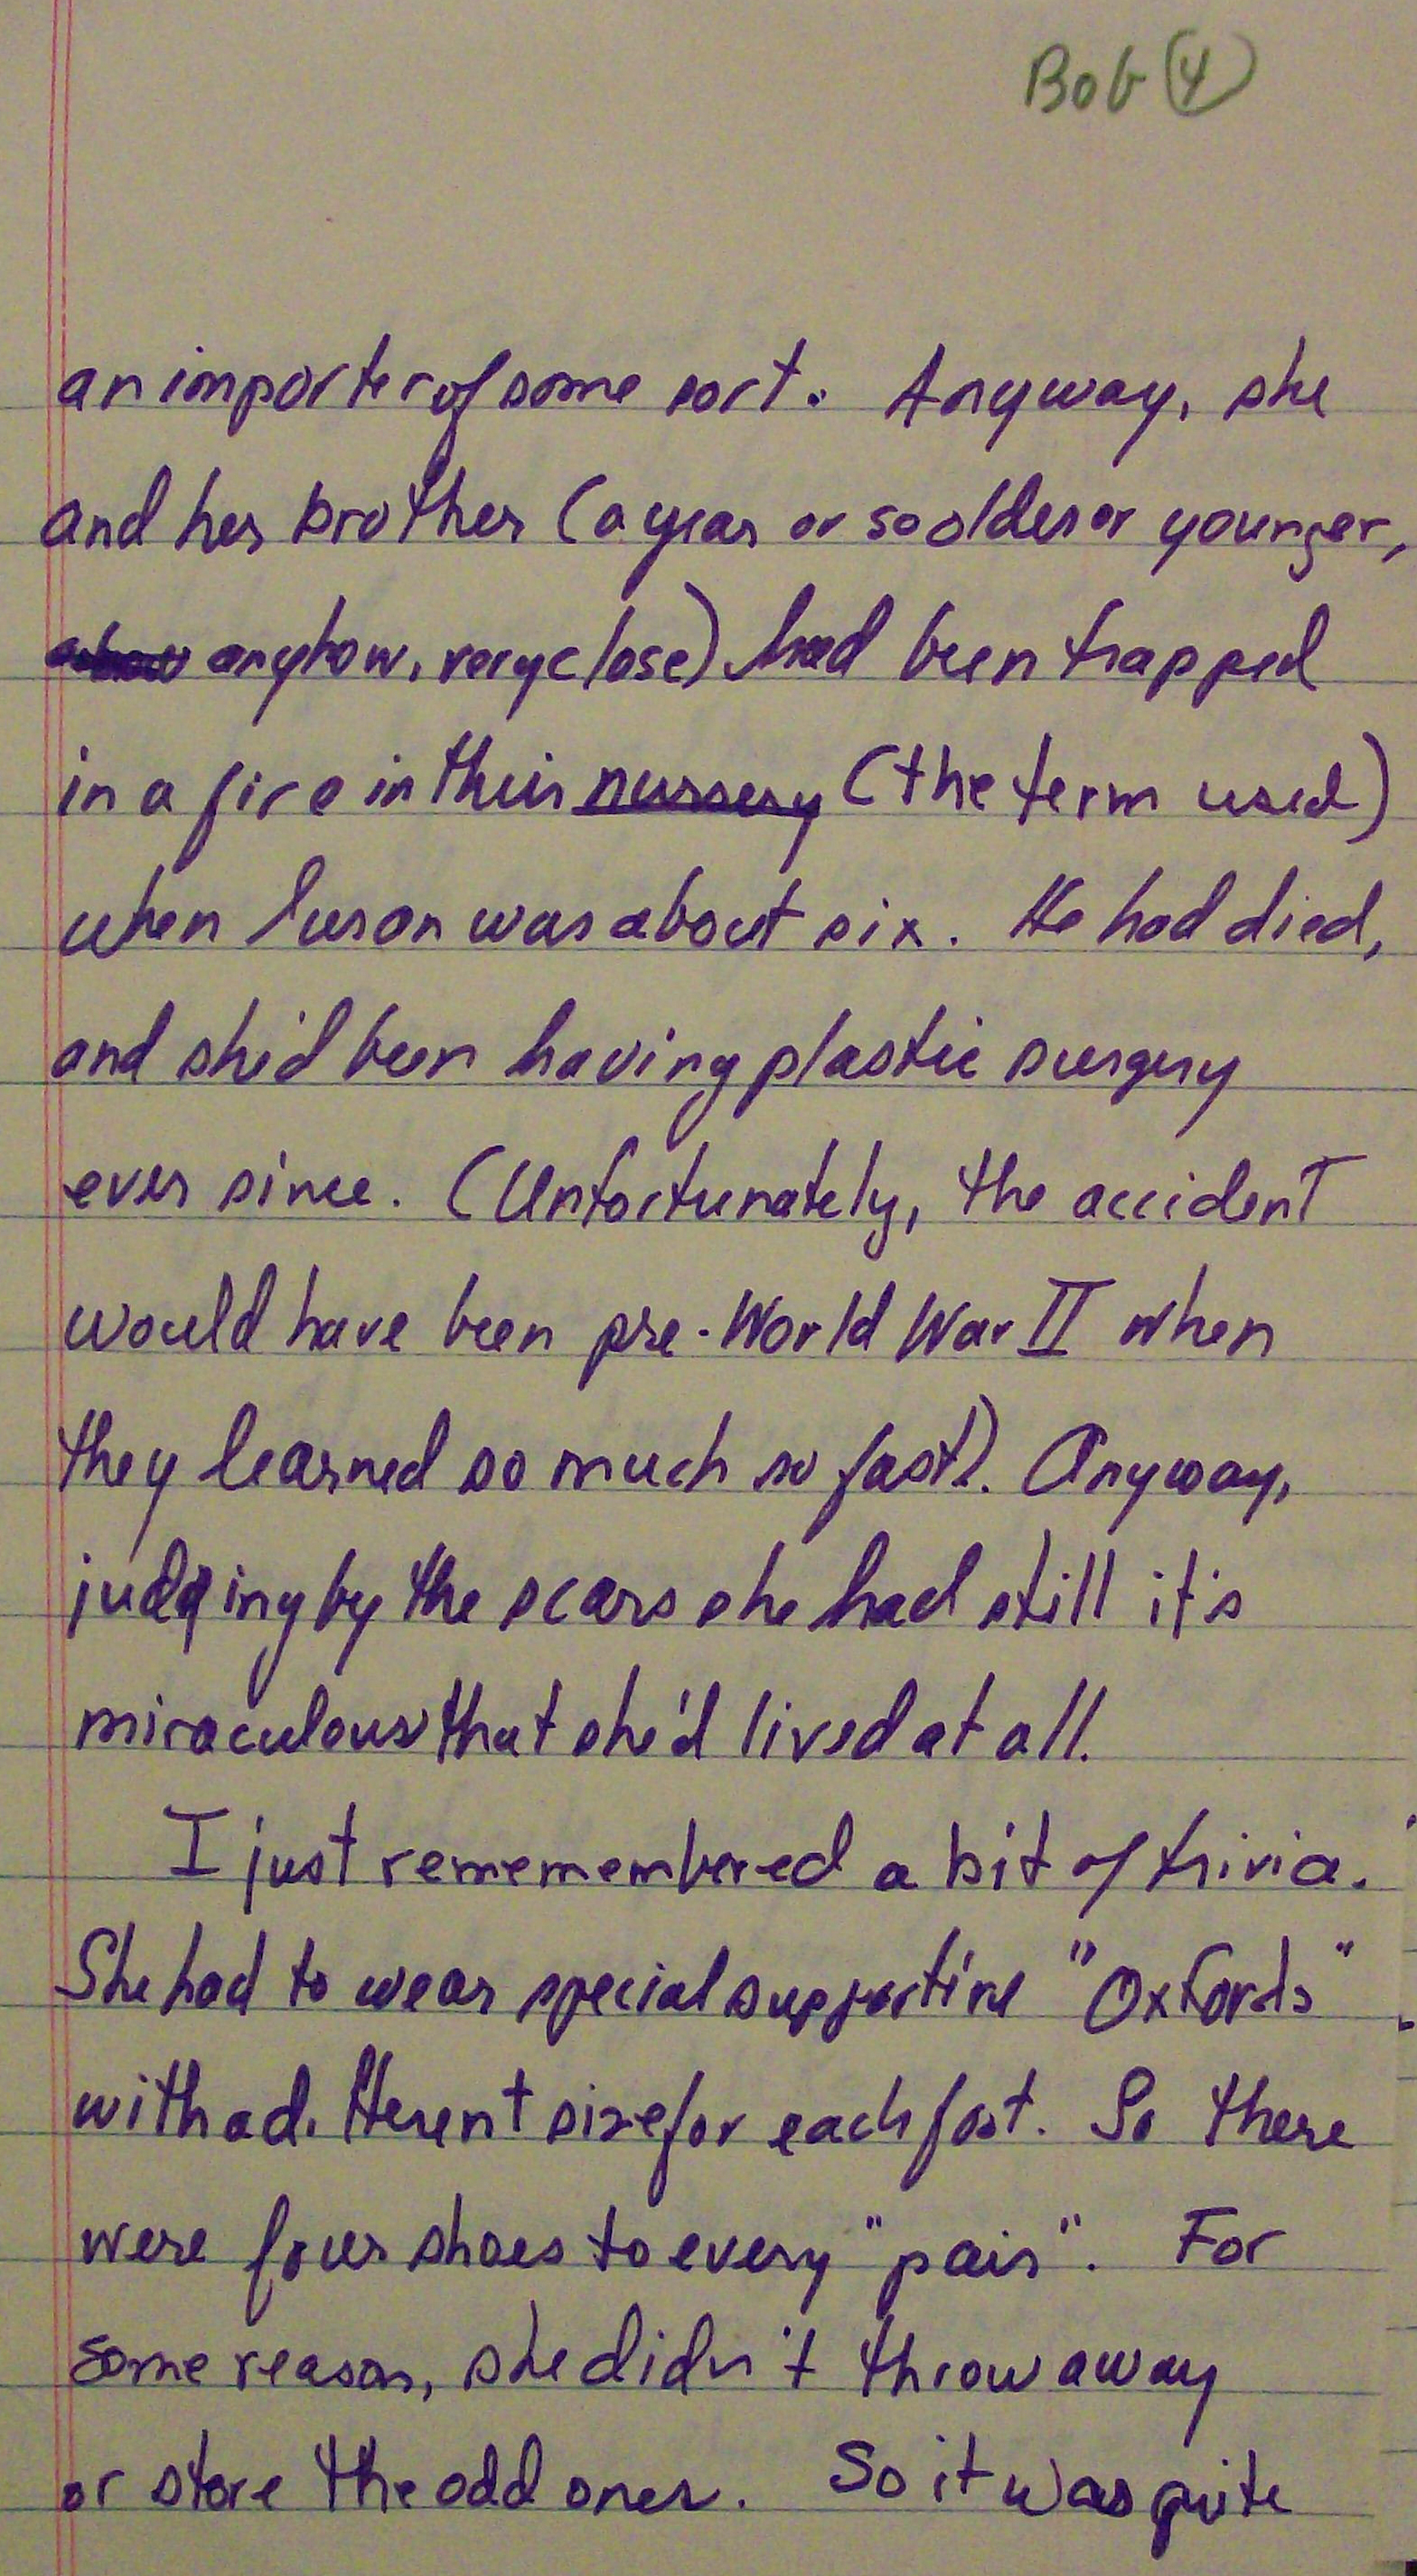 Bob (4)
an importer of some sort. Anyway, she
and her brother (a year or so older or younger,
anyhow, very close) had been trapped
in a fire in their nursery (the term used)
when Suson was about six. He had died,
and she'd been having plastic surgery
ever since. (Unfortunately, the accident
would have been pre-World War II when
they learned so much so fast). Anyway,
judging by the scars she had still it's
miraculous that she'd lived at all.
I just rememembered a bit of trivia.
She had to wear special supportive "Oxfords"
with a different size for each foot. So there
were four shoes to every "pair". For
some reason, she didn't throw away
or store the odd ones. So it was quite